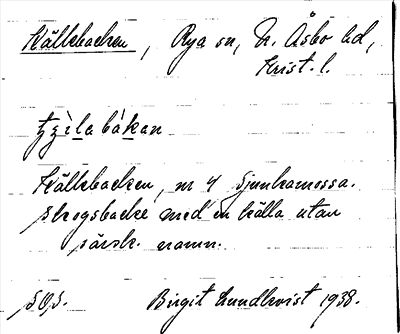 Källebacken, Rya sn, N. Åsbo hd,
Krist. l.
Källebacken, nr 4 Sjunkamossa.
Skogsbacke med en källa utan
särsk. namn.
SOS. Birgit Lundkvist 1938.